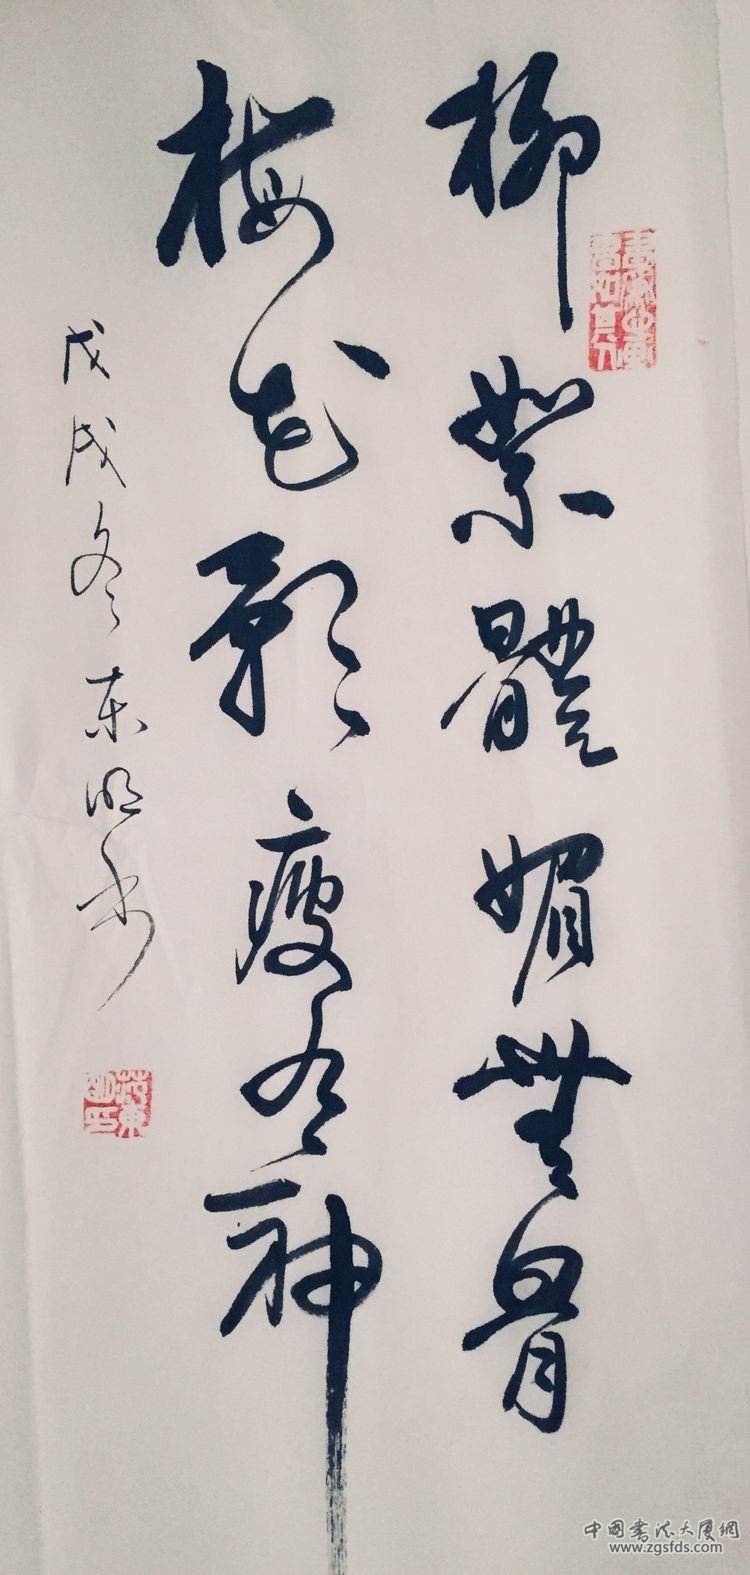 柳絮體媚無骨
梅花影瘦有神
戊戌冬东明书
中国書法大厦網
www.zgsfds.com